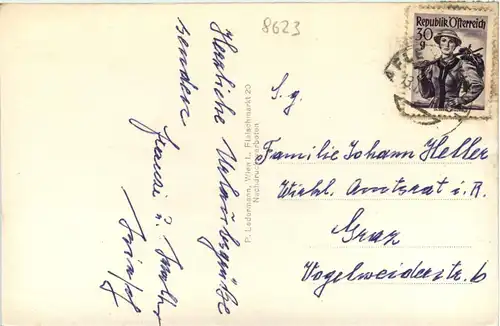 8623
Republik Österreich
30
g
Herzliche Urlaubsgrüße
senden
P. Ledermann, Wien I., Fleischmarkt 20
Nachdruck verboten
S. g.
Familie Johann Heller
Wirkl. Amtsrat i. R.
Graz
Vogelweiderstr. 6